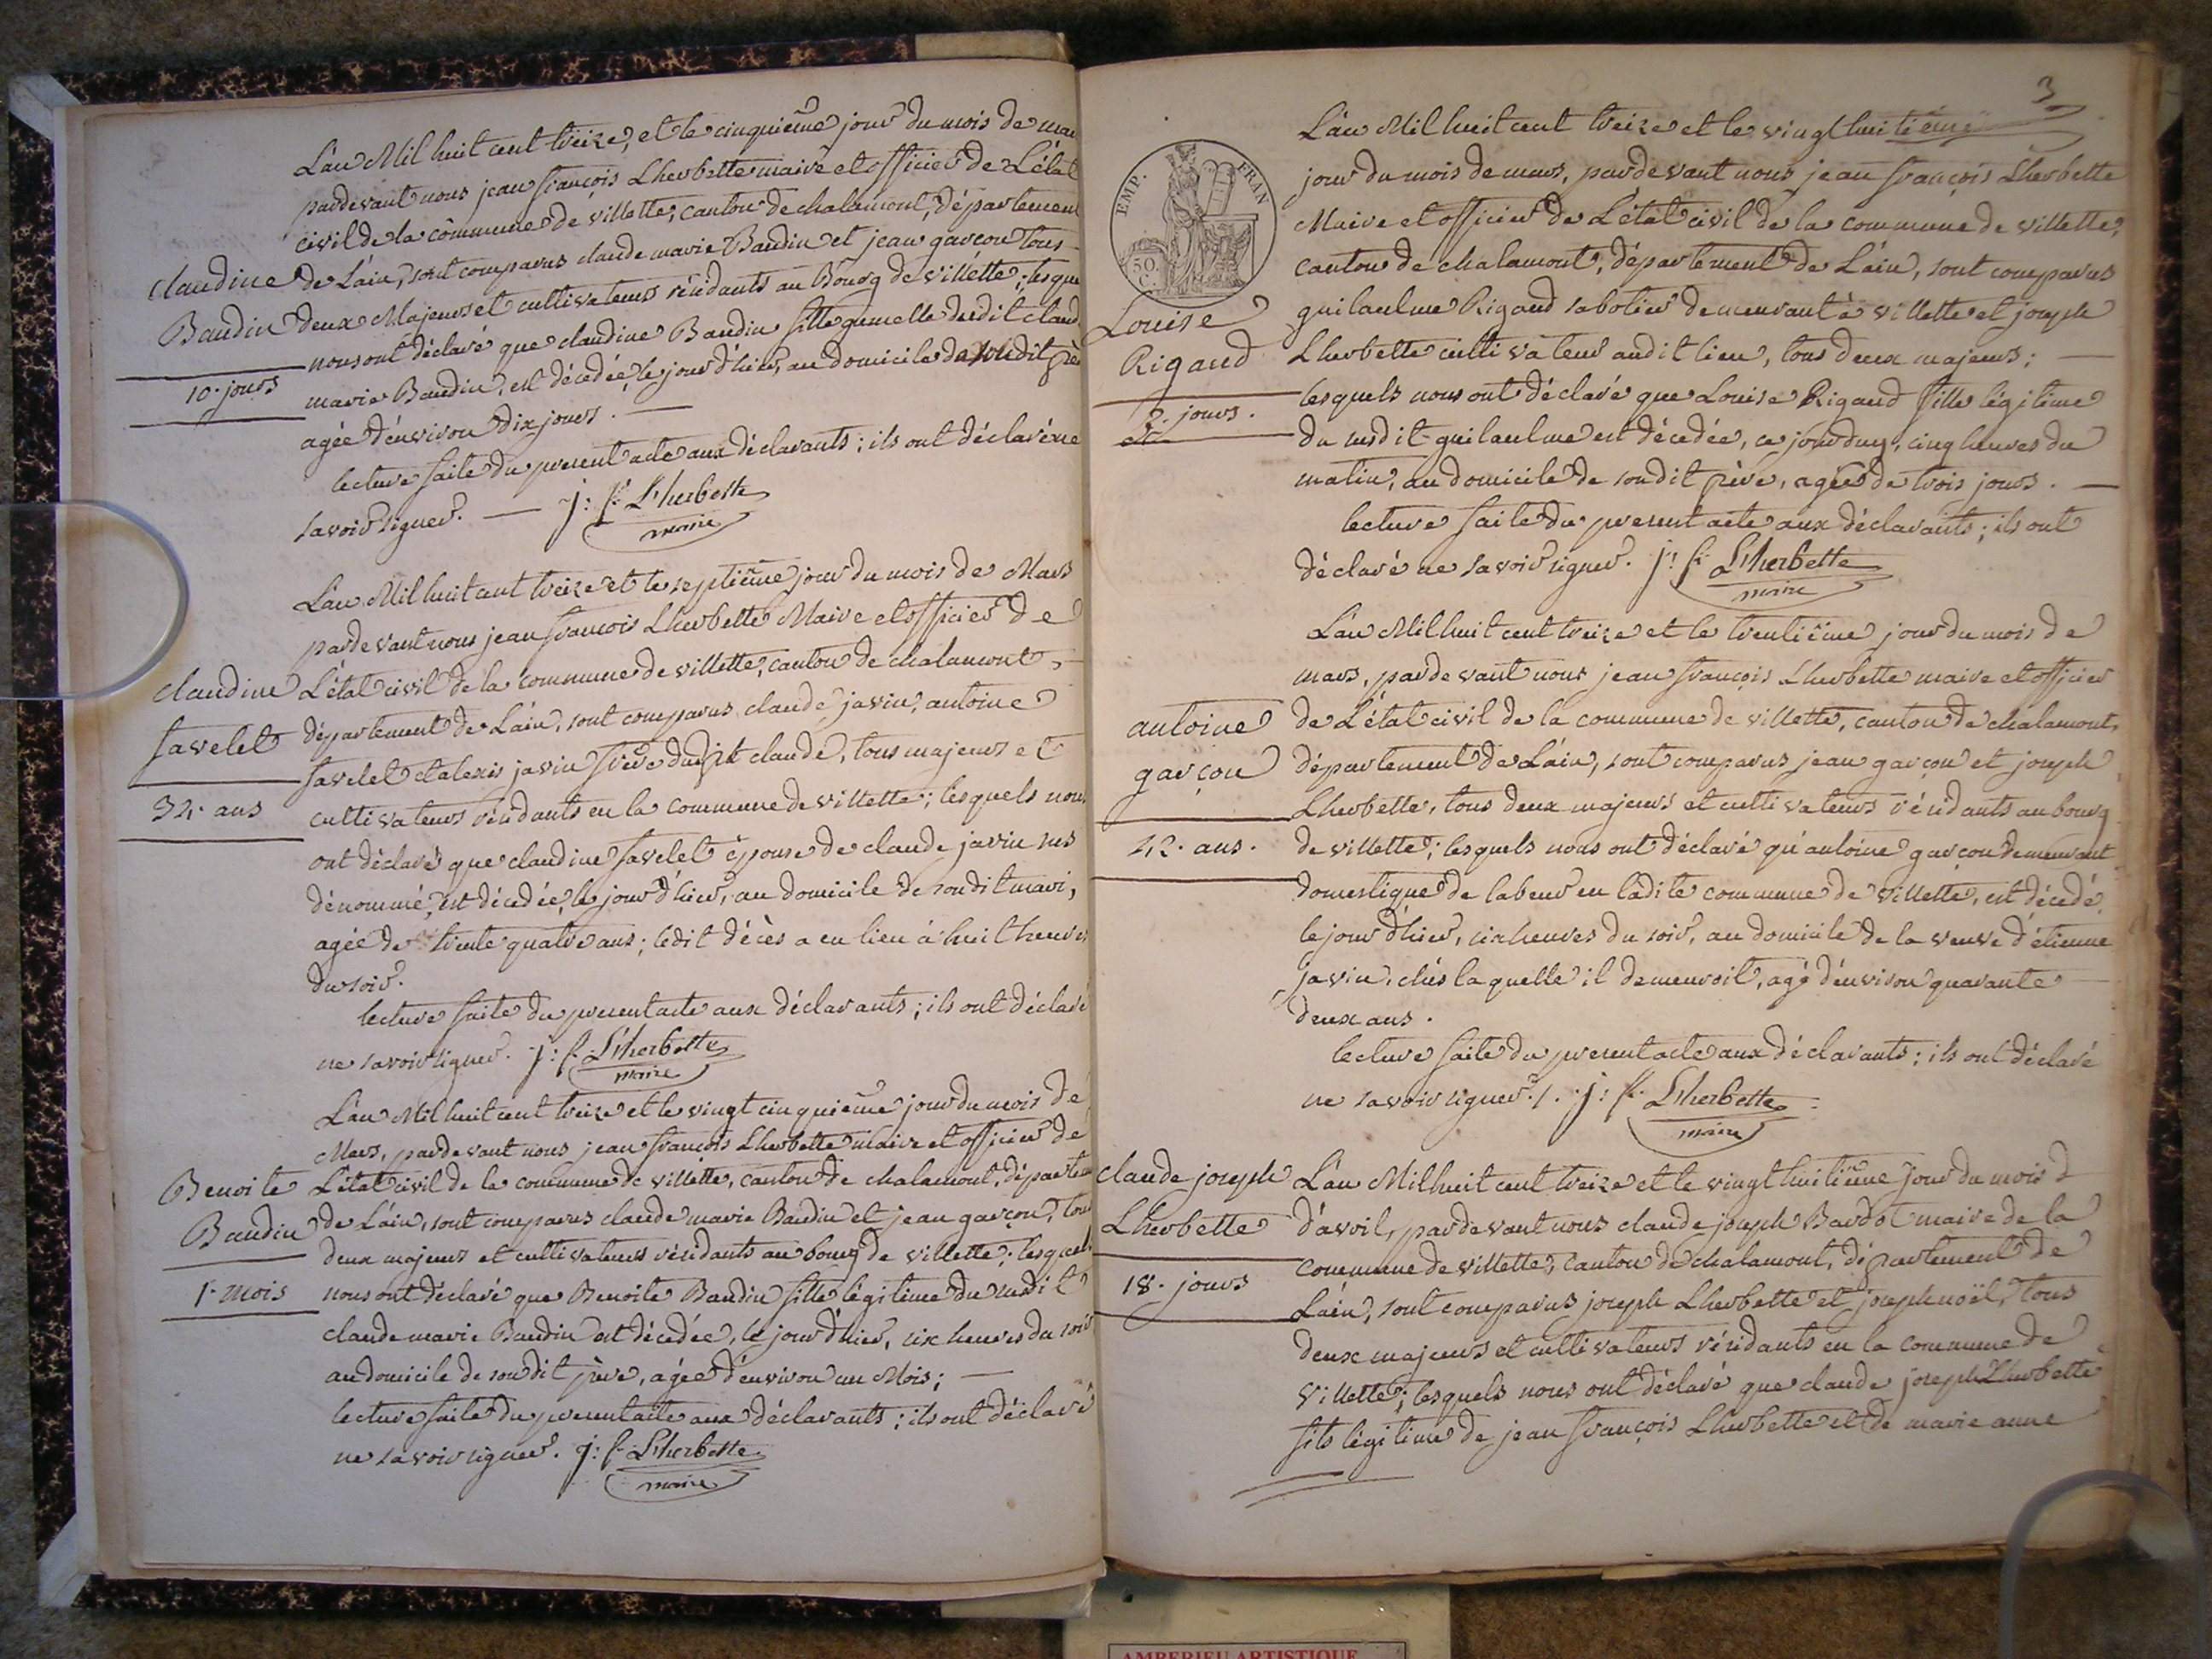 L'an Mil huit cent treize, et le cinquième jour du mois de mars
pardevant nous jean françois Lherbette maire et officier de L'état
civil de la commune de villette, canton de chalamont, département
claudine
Baudin
10. jours
de L'ain, sont comparus claude marie Baudin et jean garçon tous
deux Majeurs et cultivateurs résidants au Bourg de villette; lesquels
nous ont déclaré que claudine Baudin fille gemelle dudit claude
marie Baudin, est décedée, le jour d'hier, au domicile de sondit père
agée d'environ dix jours. —
lecture faite du present acte aux déclarants; ils ont déclaré ne
savoir signer. — j: f: Lherbette
maire
L'an Mil huit cent treize et le septième jour du mois de Mars
pardevant nous jean françois Lherbette Maire et officier de
claudine
favelet
34. ans
L'état civil de la commune de villette, canton de chalamont,
département de L'ain, sont comparus claude javin, antoine
favelet et alexis javin frère dudit claude, tous majeurs et
cultivateurs résidants en la commune de villette; lesquels nous
ont déclaré que claudine favelet épouse de claude javin sus
dénommé, est décedée, le jour d'hier, au domicile de sondit mari,
agée de trente quatre ans; ledit décès a eu lieu à huit heures
du soir.
lecture faite du present acte aux déclarants; ils ont déclaré
ne savoir signer. j: f: Lherbette
maire
L'an Mil huit cent treize et le vingt cinquième jour du mois de
Mars, pardevant nous jean françois Lherbette maire et officier de
Benoite
Baudin
1. mois
L'état civil de la commune de villette, canton de chalamont, département
de L'ain, sont comparus claude marie Baudin et jean garçon, tous
deux majeurs et cultivateurs résidants au bourg de villette; lesquels
nous ont déclaré que Benoite Baudin fille légitime du susdit
claude marie Baudin est décedée, le jour d'hier, six heures du soir
au domicile de sondit père, agée d'environ un Mois; —
lecture faite du present acte aux déclarants; ils ont déclaré
ne savoir signer. j: f: Lherbette
maire
3
EMP. FRAN
50.
C.
L'an Mil huit cent treize et le vingt huitième
jour du mois de mars, pardevant nous jean françois Lherbette
Maire et officier de L'état civil de la commune de villette,
canton de chalamont, département de L'ain, sont comparus
Louise
Rigaud
3. jours.
guilaulme Rigaud sabotier demeurant à villette et joseph
Lherbette cultivateur audit lieu, tous deux majeurs; —
lesquels nous ont déclaré que Louise Rigaud fille légitime
du susdit guilaulme est décedée, ce jourduy, cinq heures du
matin, au domicile de sondit père, agée de trois jours. —
lecture faite du present acte aux déclarants; ils ont
déclaré ne savoir signer. j: f: Lherbette
maire
L'an Mil huit cent treize et le trentième jour du mois de
mars, pardevant nous jean françois Lherbette maire et officier
antoine
garçon
42. ans.
de L'état civil de la commune de villette, canton de chalamont,
département de L'ain, sont comparus jean garçon et joseph
Lherbette, tous deux majeurs et cultivateurs résidants au bourg
de villette; lesquels nous ont déclaré qu'antoine garçon demeurant
domestique de labeur en ladite commune de villette, est décedé,
le jour d'hier, six heures du soir, au domicile de la veuve d'étienne
javin, chés laquelle il demeuroit, agé d'environ quarante
deux ans.
lecture faite du present acte aux déclarants; ils ont déclaré
ne savoir signer./. j: f: Lherbette
maire
claude joseph
Lherbette
18. jours
L'an Mil huit cent treize et le vingt huitième jour du mois d
d'avril, pardevant nous claude joseph Bardot maire de la
commune de villette, canton de chalamont, département de
L'ain, sont comparus joseph Lherbette et joseph noël, tous
deux majeurs et cultivateurs résidants en la commune de
villette; lesquels nous ont déclaré que claude joseph Lherbette
fils légitime de jean françois Lherbette et de marie anne
AMBERIEU ARTISTIQUE